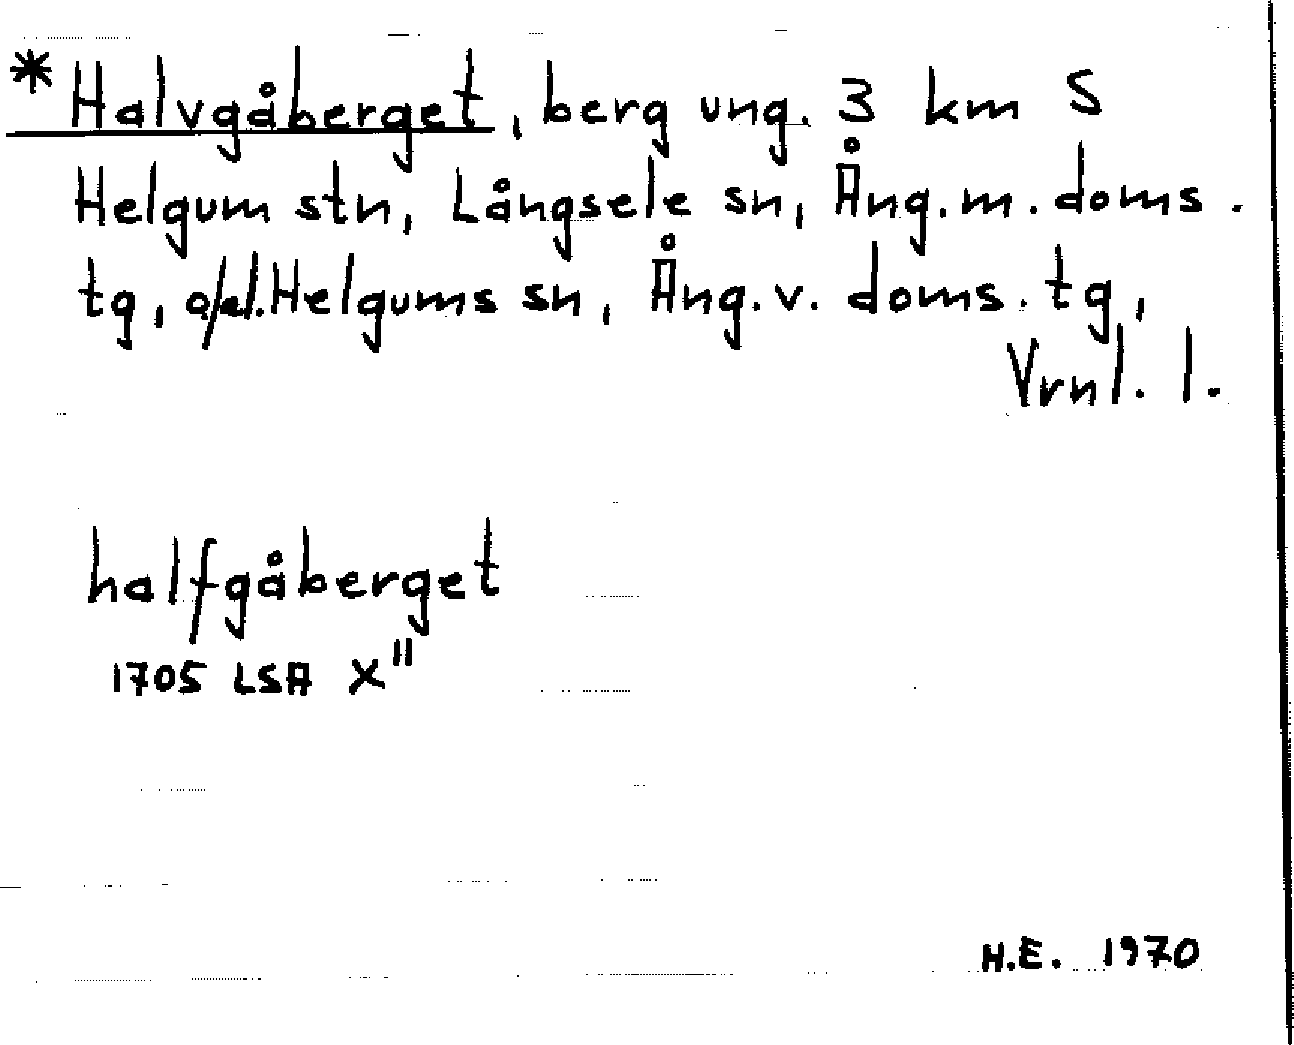 * Halvgåberget, berg ung. 3 km S
Helgum stn, Långsele sn, Ång. m. doms.
tg, o/el. Helgums sn, Ång. v. doms. tg,
Vrnl. l.
halfgåberget
1705 LSA X"
H.E. 1970